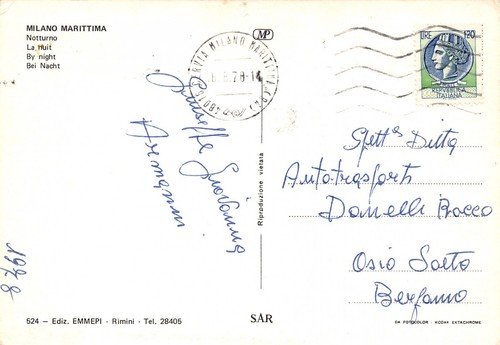 MILANO MARITTIMA
Notturno
La nuit
By night
Bei Nacht
MP
48016 MILANO MARITTIMA
8.78-14
LIRE 120
REPVBBLICA
ITALIANA
Giuseppe Giovanna
Armanni
1978
Riproduzione vietata
Spett.le Ditta
Autotrasporti
Donelli Rocco
Osio Sotto
Bergamo
524 - Ediz. EMMEPI - Rimini - Tel. 28405
SAR
DA FOTOCOLOR - KODAK EKTACHROME